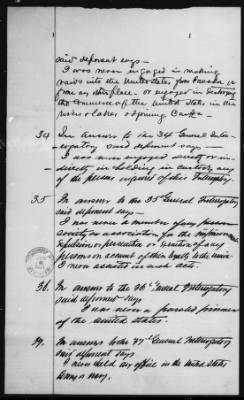 said deponent says—
I was never engaged in making
raids into the United States from Canada or
from any other place. or engaged in destroying
the Commerce of the United States in the
lakes adjoining Canada
34 In answer to the 34 General Inter-
rogatory said deponent says—
I was never engaged directly or in-
directly in holding in custody any
of the persons inquired of other Interrogatory
35 In answer to the 35 General Interrogatory
said deponent says—
I was never a member of any
society or association for the imprisonment
Expulsion or persecution or of any
persons on account of their loyalty to the union
I never assisted in such acts.
36. In answer to the 36th General Interrogatory
said deponent says
I was never a paroled prisoner
of the United States.
37. In answer to the 37th General Interrogatory
said deponent says
I never held any office in the United States
Army or Navy.